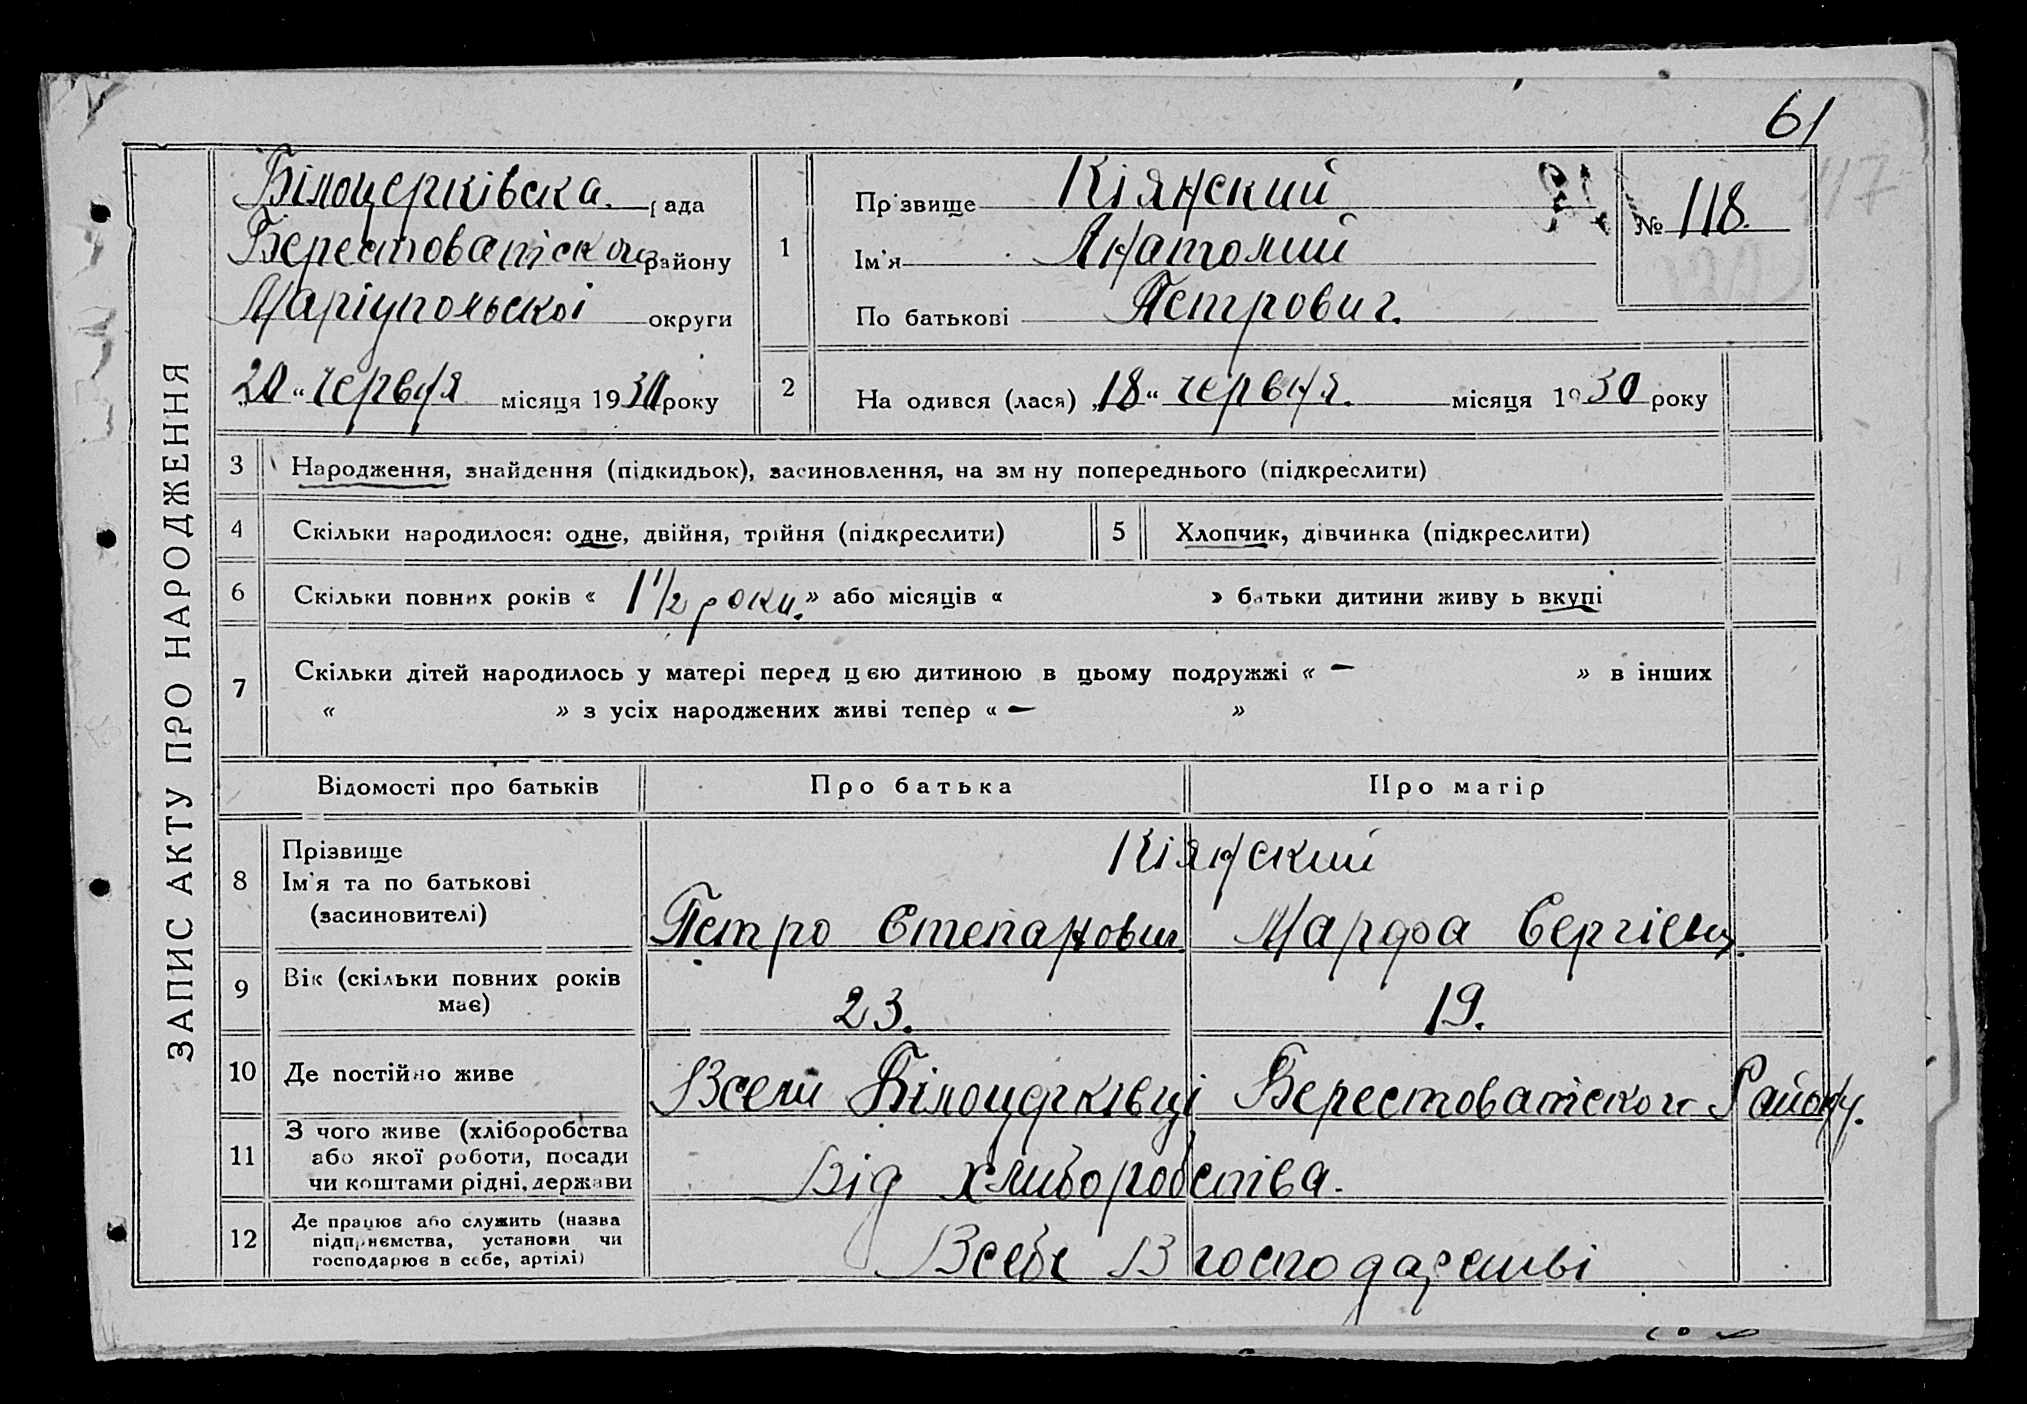 61
117
ЗАПИС АКТУ ПРО НАРОДЖЕННЯ
Білоцерківска рада
Берестоватіского району
Маріупольскоі округи
„20“ червня місяця 1930 року
1
Пр звище Кіянский
Ім'я Анатолий
По батькові Петрович.
№ 118.
2
На одився (лася) „18“ червня. місяця 1930 року
3 Народження, знайдення (підкидьок), засиновлення, на зм ну попереднього (підкреслити)
4 Скільки народилося: одне, двійня, трійня (підкреслити) 5 Хлопчик, дівчинка (підкреслити)
6 Скільки повних років « 1 1/2 роки. » або місяців « » батьки дитини живу ь вкупі
7 Скільки дітей народилось у матері перед цією дитиною в цьому подружжі « — » в інших
« » з усіх народжених живі тепер « — »
Відомості про батьків Про батька Про матір
8 Прізвище Кіянский
Ім'я та по батькові
(засиновителі) Петро Степанович Марфа Сергієвн.
9 Вік (скільки повних років
має) 23. 19.
10 Де постійно живе Вселі Білоцерківці Берестоватского Району.
11 З чого живе (хліборобства
або якої роботи, посади
чи коштами рідні, держави Від хлиборобства.
12 Де працює або служить (назва
підприємства, установи чи
господарює в себе, артілі) Всебе В господарстві